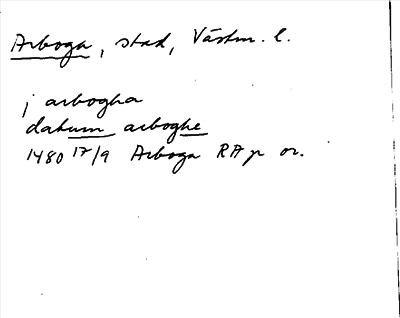 Arboga, stad, Västm. l.
j arbogha
datum arboghe
1480 17/9 Arboga RAp or.